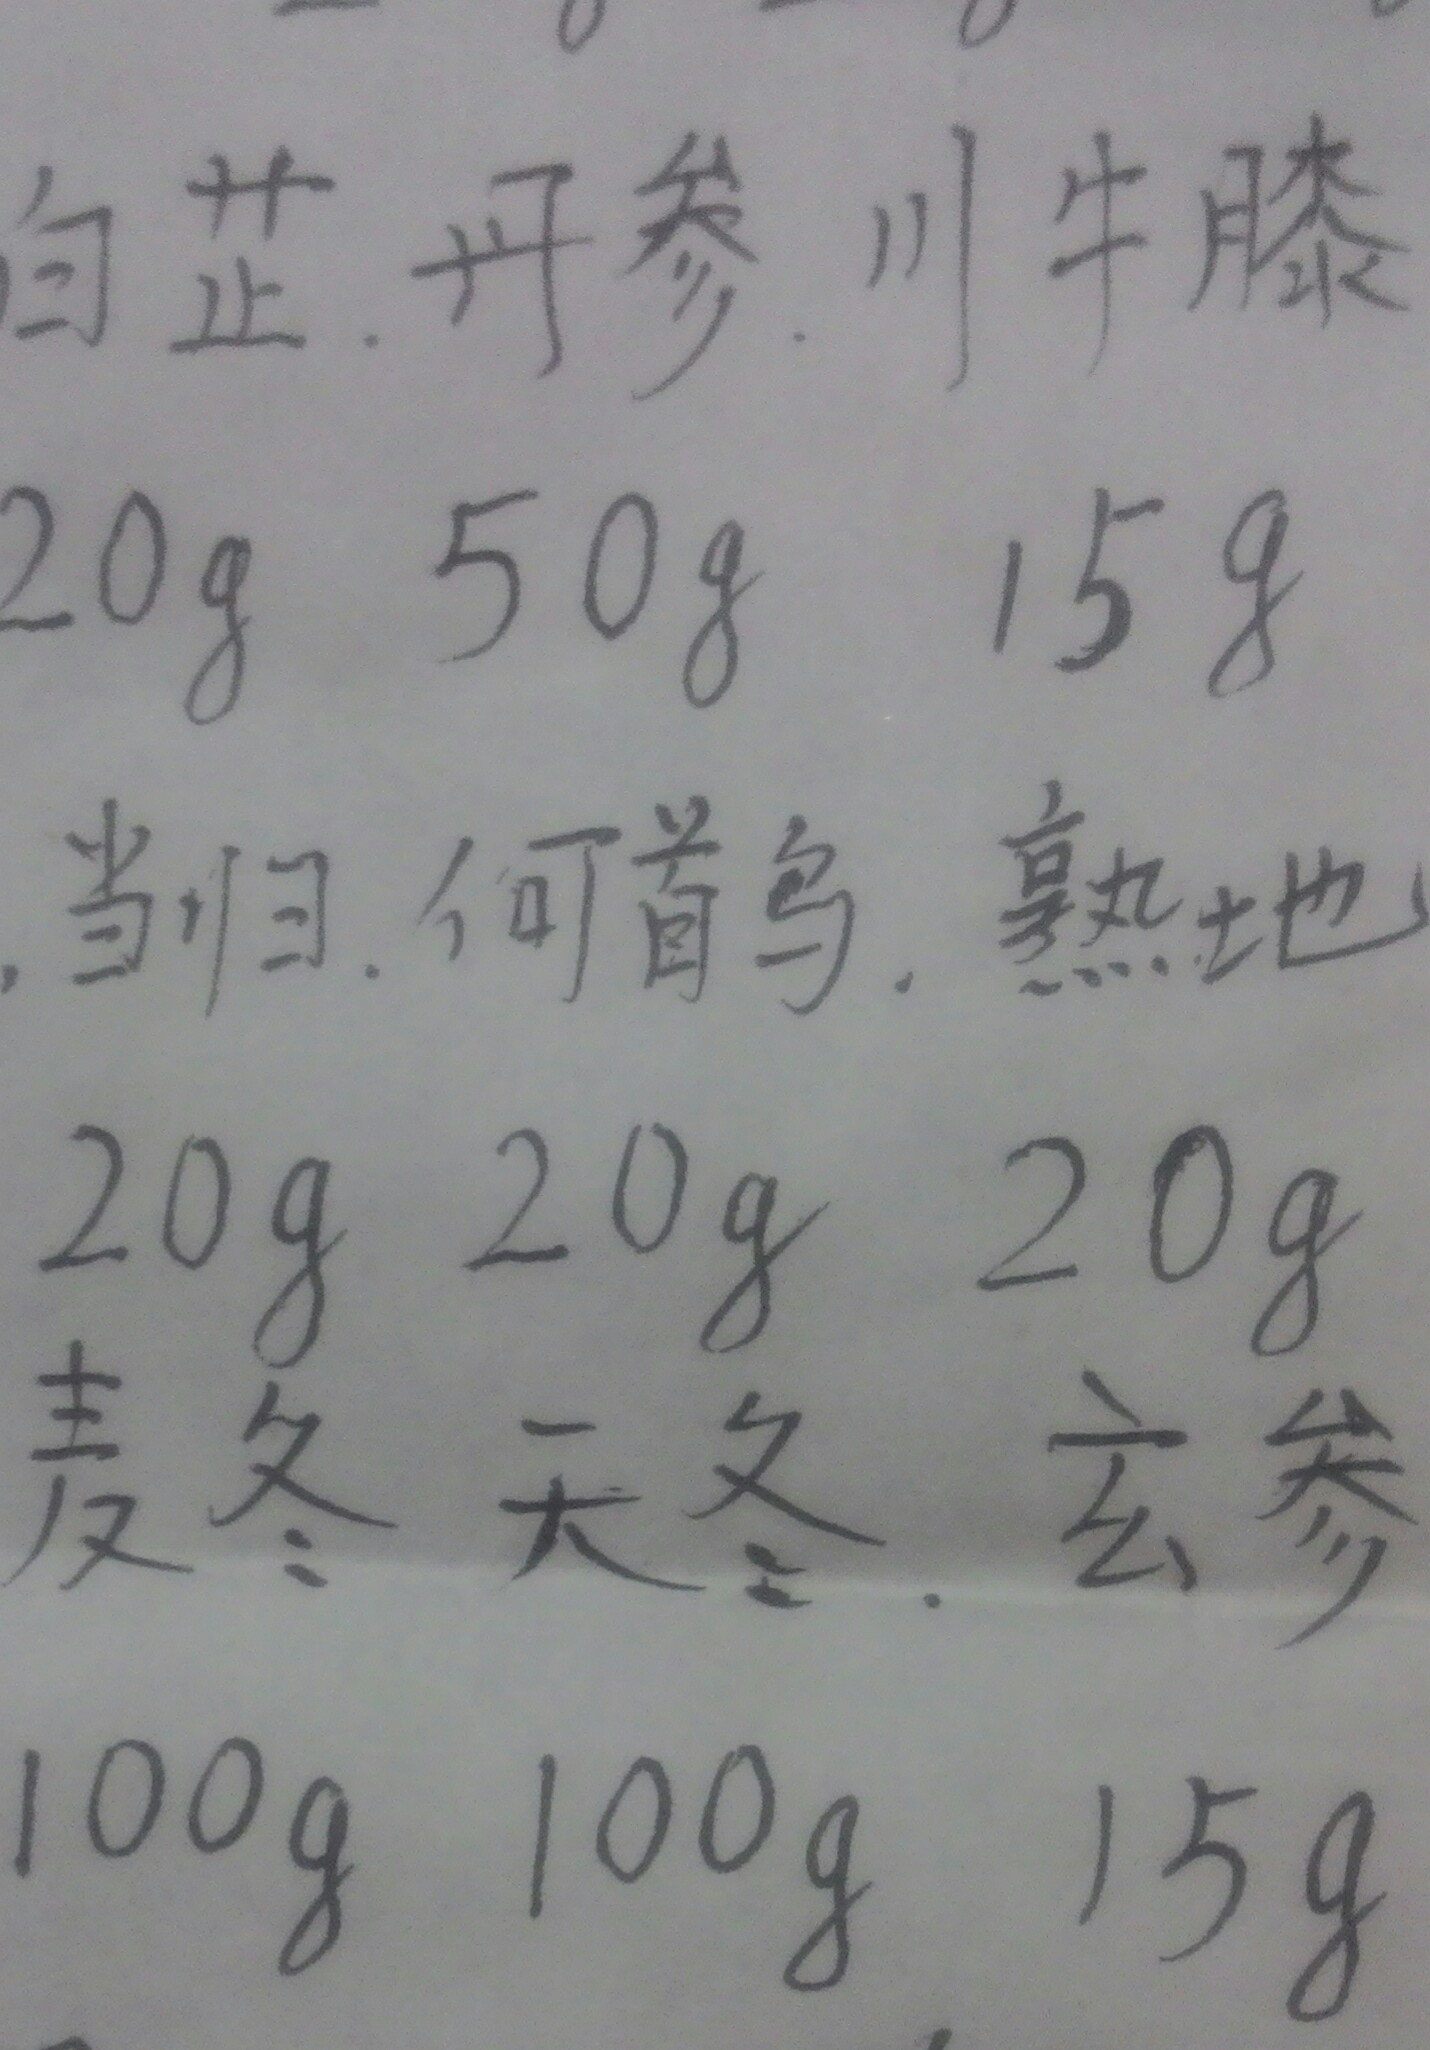 白芷.丹参.川牛膝
20g 50g 15g
.当归.何首乌.熟地
20g 20g 20g
麦冬 天冬.玄参
100g 100g 15g